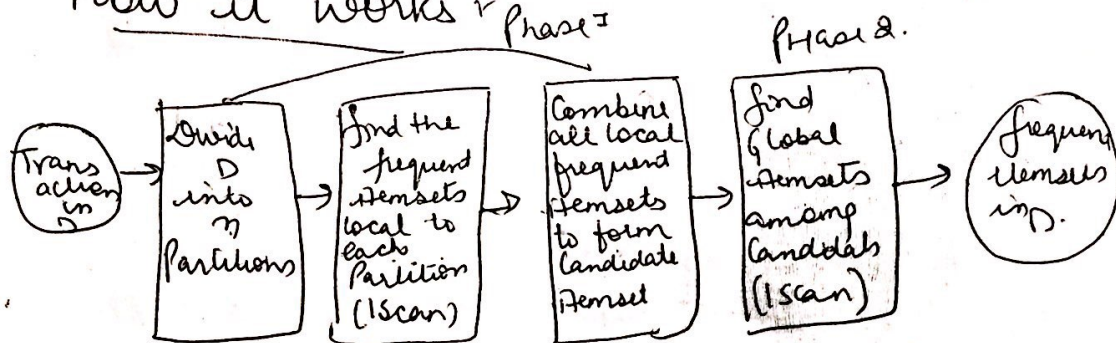 How it works :
Phase I
Phase 2.
Trans
action
in
D
Divide
D
into
n
Partitions
find the
frequent
itemsets
local to
each
Partition
(1 Scan)
Combine
all local
frequent
itemsets
to form
Candidate
itemset
find
Global
itemsets
among
Candidats
(1 Scan)
frequent
itemsets
in D.